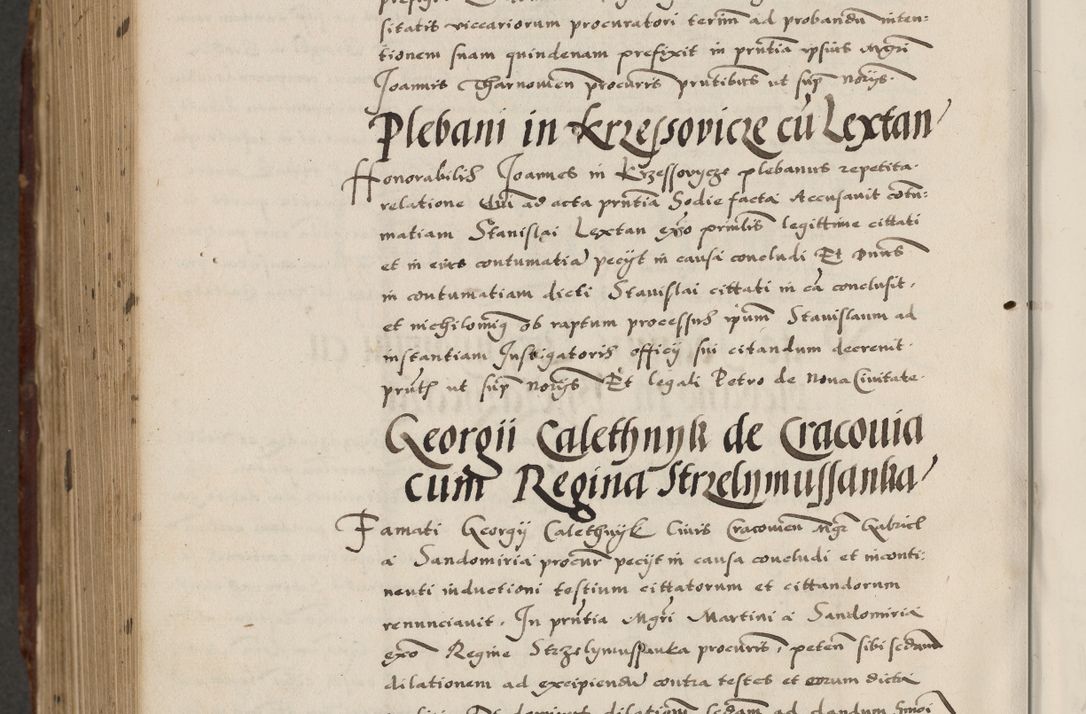 sitatis viccariorum procuratori termin ad probandum inten:
tionem suam quindenam prefixit in prntia ipsius Mgri
Joannis Tharnowien procuris prntibus ut sup norijs.
Plebani in Krzessovicze cu Lextan
Honorabilis Joannes in Krzessovycze plebanus repetita
relatione Qui ad acta prntia Hodie facta Accusavit contu:
matiam Stanislai Lextan exo prmlis legittime cittati
et in eius contumatia pecijt in causa concludi Et Dnus
in contumatiam dicti Stanislai cittati in ca conclusit.
et nichilominq ob raptum processus ipum Stanislaum ad
instantiam Instigatoris officij sui citandum decrevit.
prntb ut sup norijs Et legali Petro de Nova Civitate.
Georgii Calethnyk de Cracovia
cum Regina Strzelymussanka
Famati Georgij Calethnyk Civis Cracovien Mgr Gabriel
a Sandomiria procur pecijt in causa concludi et inconti:
nenti inductioni testium cittatorum et cittandorum
renunciavit. In prntia Mgri Martini a Sandomiria
exo Regine Strzelymussanka procuris, peten sibi sedam
dilationem ad excipiendum contra testes et eorum dicta